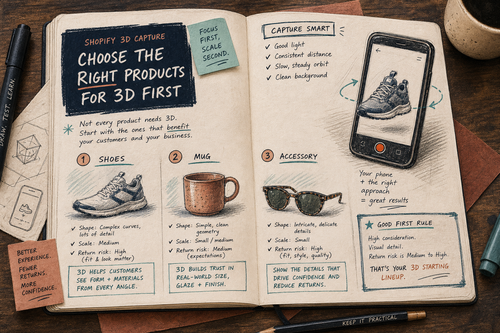 SHOPIFY 3D CAPTURE
CHOOSE THE
RIGHT PRODUCTS
FOR 3D FIRST
FOCUS
FIRST,
SCALE
SECOND.
Not every product needs 3D.
Start with the ones that benefit
your customers and your business.
1 SHOES
✓ Shape: Complex curves,
lots of detail
✓ Scale: Medium
✓ Return risk: High
(fit & look matter)
3D HELPS CUSTOMERS
SEE FORM + MATERIALS
FROM EVERY ANGLE.
2 MUG
✓ Shape: Simple, clean
geometry
✓ Scale: Small / medium
✓ Return risk: Medium
(expectations)
3D BUILDS TRUST IN
REAL-WORLD SIZE,
GLAZE + FINISH.
BETTER
EXPERIENCE.
FEWER
RETURNS.
MORE
CONFIDENCE.
DRAW. TEST. LEARN.
CAPTURE SMART
✓ Good light
✓ Consistent distance
✓ Slow, steady orbit
✓ Clean background
3 ACCESSORY
✓ Shape: Intricate, delicate
details
✓ Scale: Small
✓ Return risk: High
(fit, style, quality)
SHOW THE DETAILS THAT
DRIVE CONFIDENCE AND
REDUCE RETURNS.
Your phone
+ the right
approach
= great results
GOOD FIRST RULE
High consideration.
Visual detail.
Return risk is Medium to High.
THAT'S YOUR 3D STARTING
LINEUP.
KEEP IT PRACTICAL